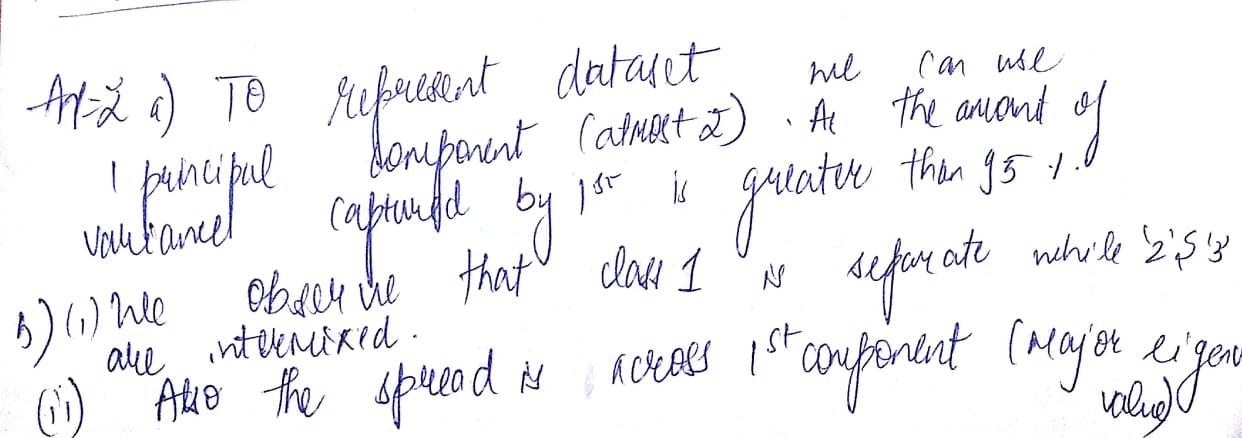 Ar-2 a) TO represent dataset we can use
1 principal component (atmost 2). As the amount of
variance captured by 1st is greater than 95 %.
b) (i) We observe that class 1 is separate while '2' & '3'
are intermixed.
(ii) Also the spread is across 1st component (Major eigen
value)